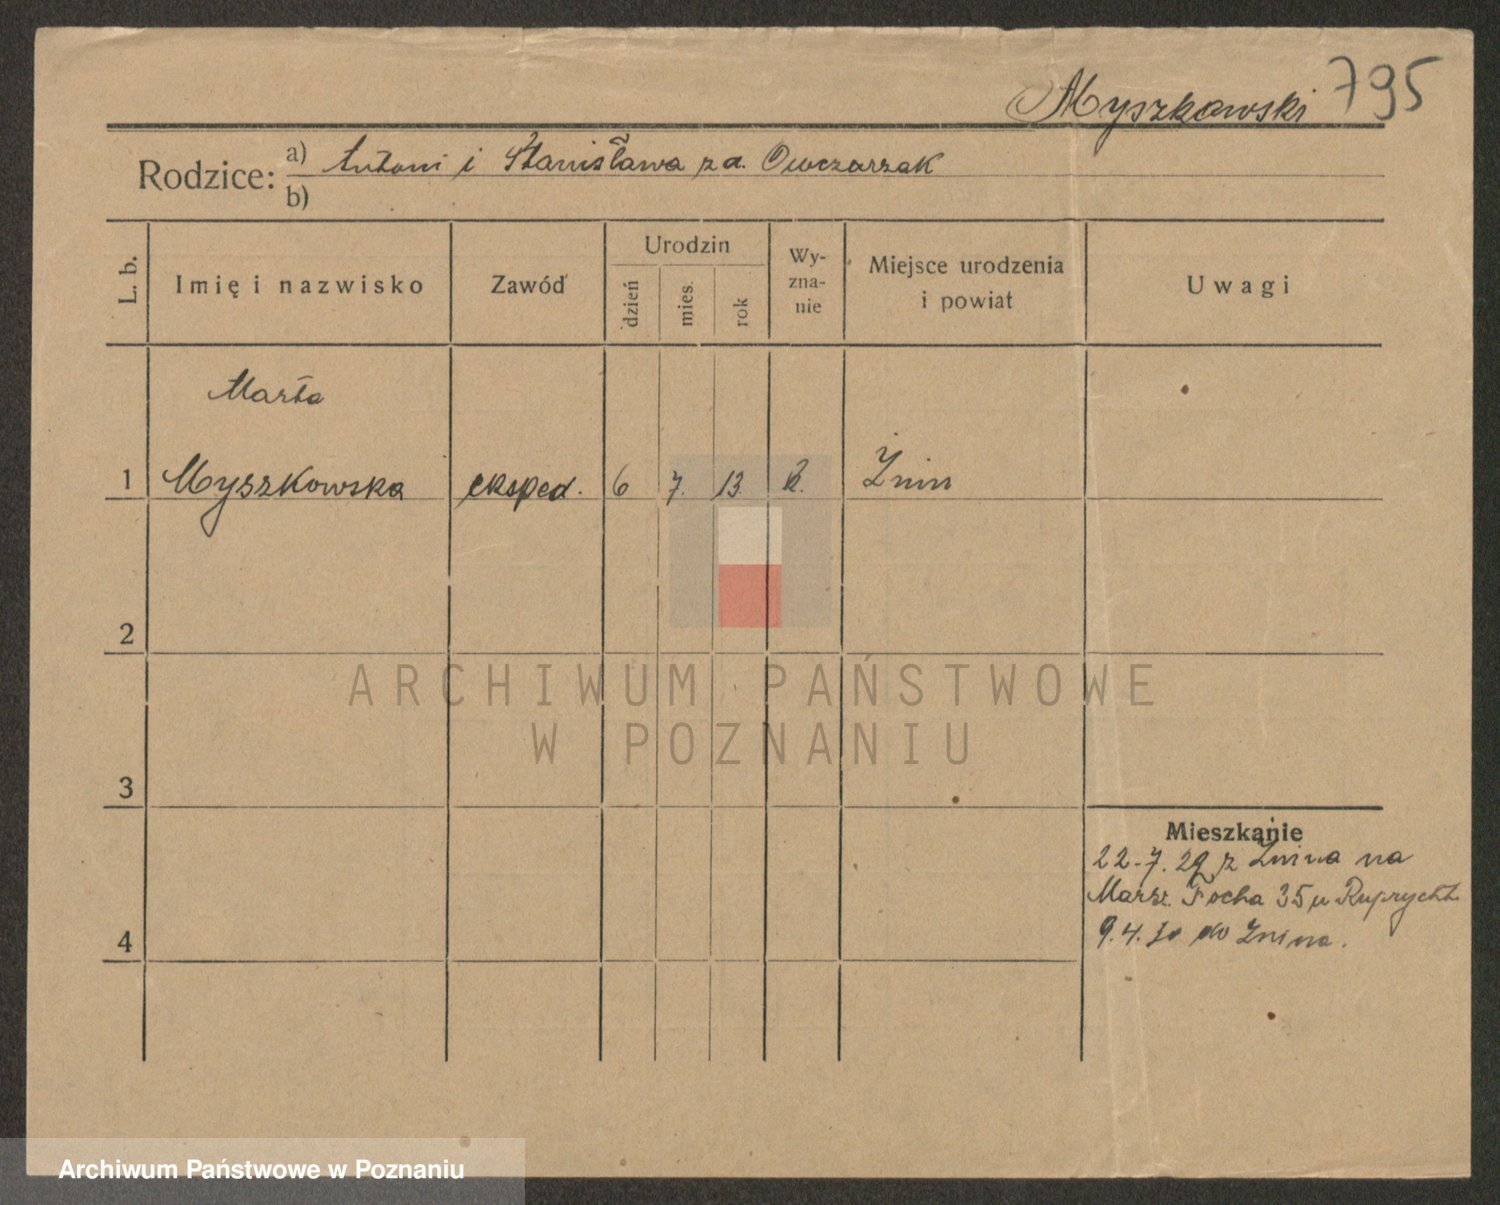 Myszkowski 795
Rodzice: a) Antoni i Stanisława z d. Owczarzak
b)
L. b.
Imię i nazwisko
Zawód
Urodzin
dzień
mies.
rok
Wy-
zna-
nie
Miejsce urodzenia
i powiat
Uwagi
Marta
1 Myszkowska eksped. 6 7. 13. Żnin
2
3
4
Mieszkanie
22.7.29 z Żnina na
Marsz. Focha 35 u Ruprycht
9.4.30 do Żnina.
ARCHIWUM PAŃSTWOWE
W POZNANIU
Archiwum Państwowe w Poznaniu